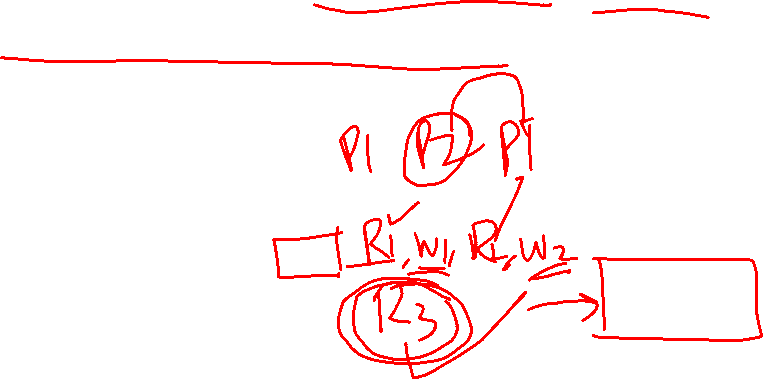 P1 P2 P1
R1, W1, R2, W2
R3